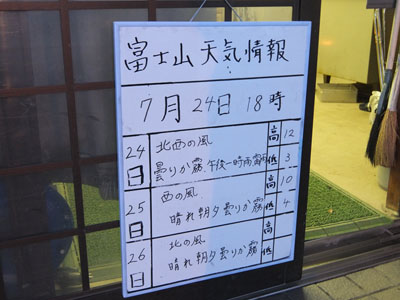 富士山天気情報
7月24日18時
24日 北西の風 高 12
曇りか霧、午後一時雨雷雨 低 3
25日 西の風 高 10
晴れ朝夕曇りか霧 低 4
26日 北の風 高
晴れ朝夕曇りか霧 低